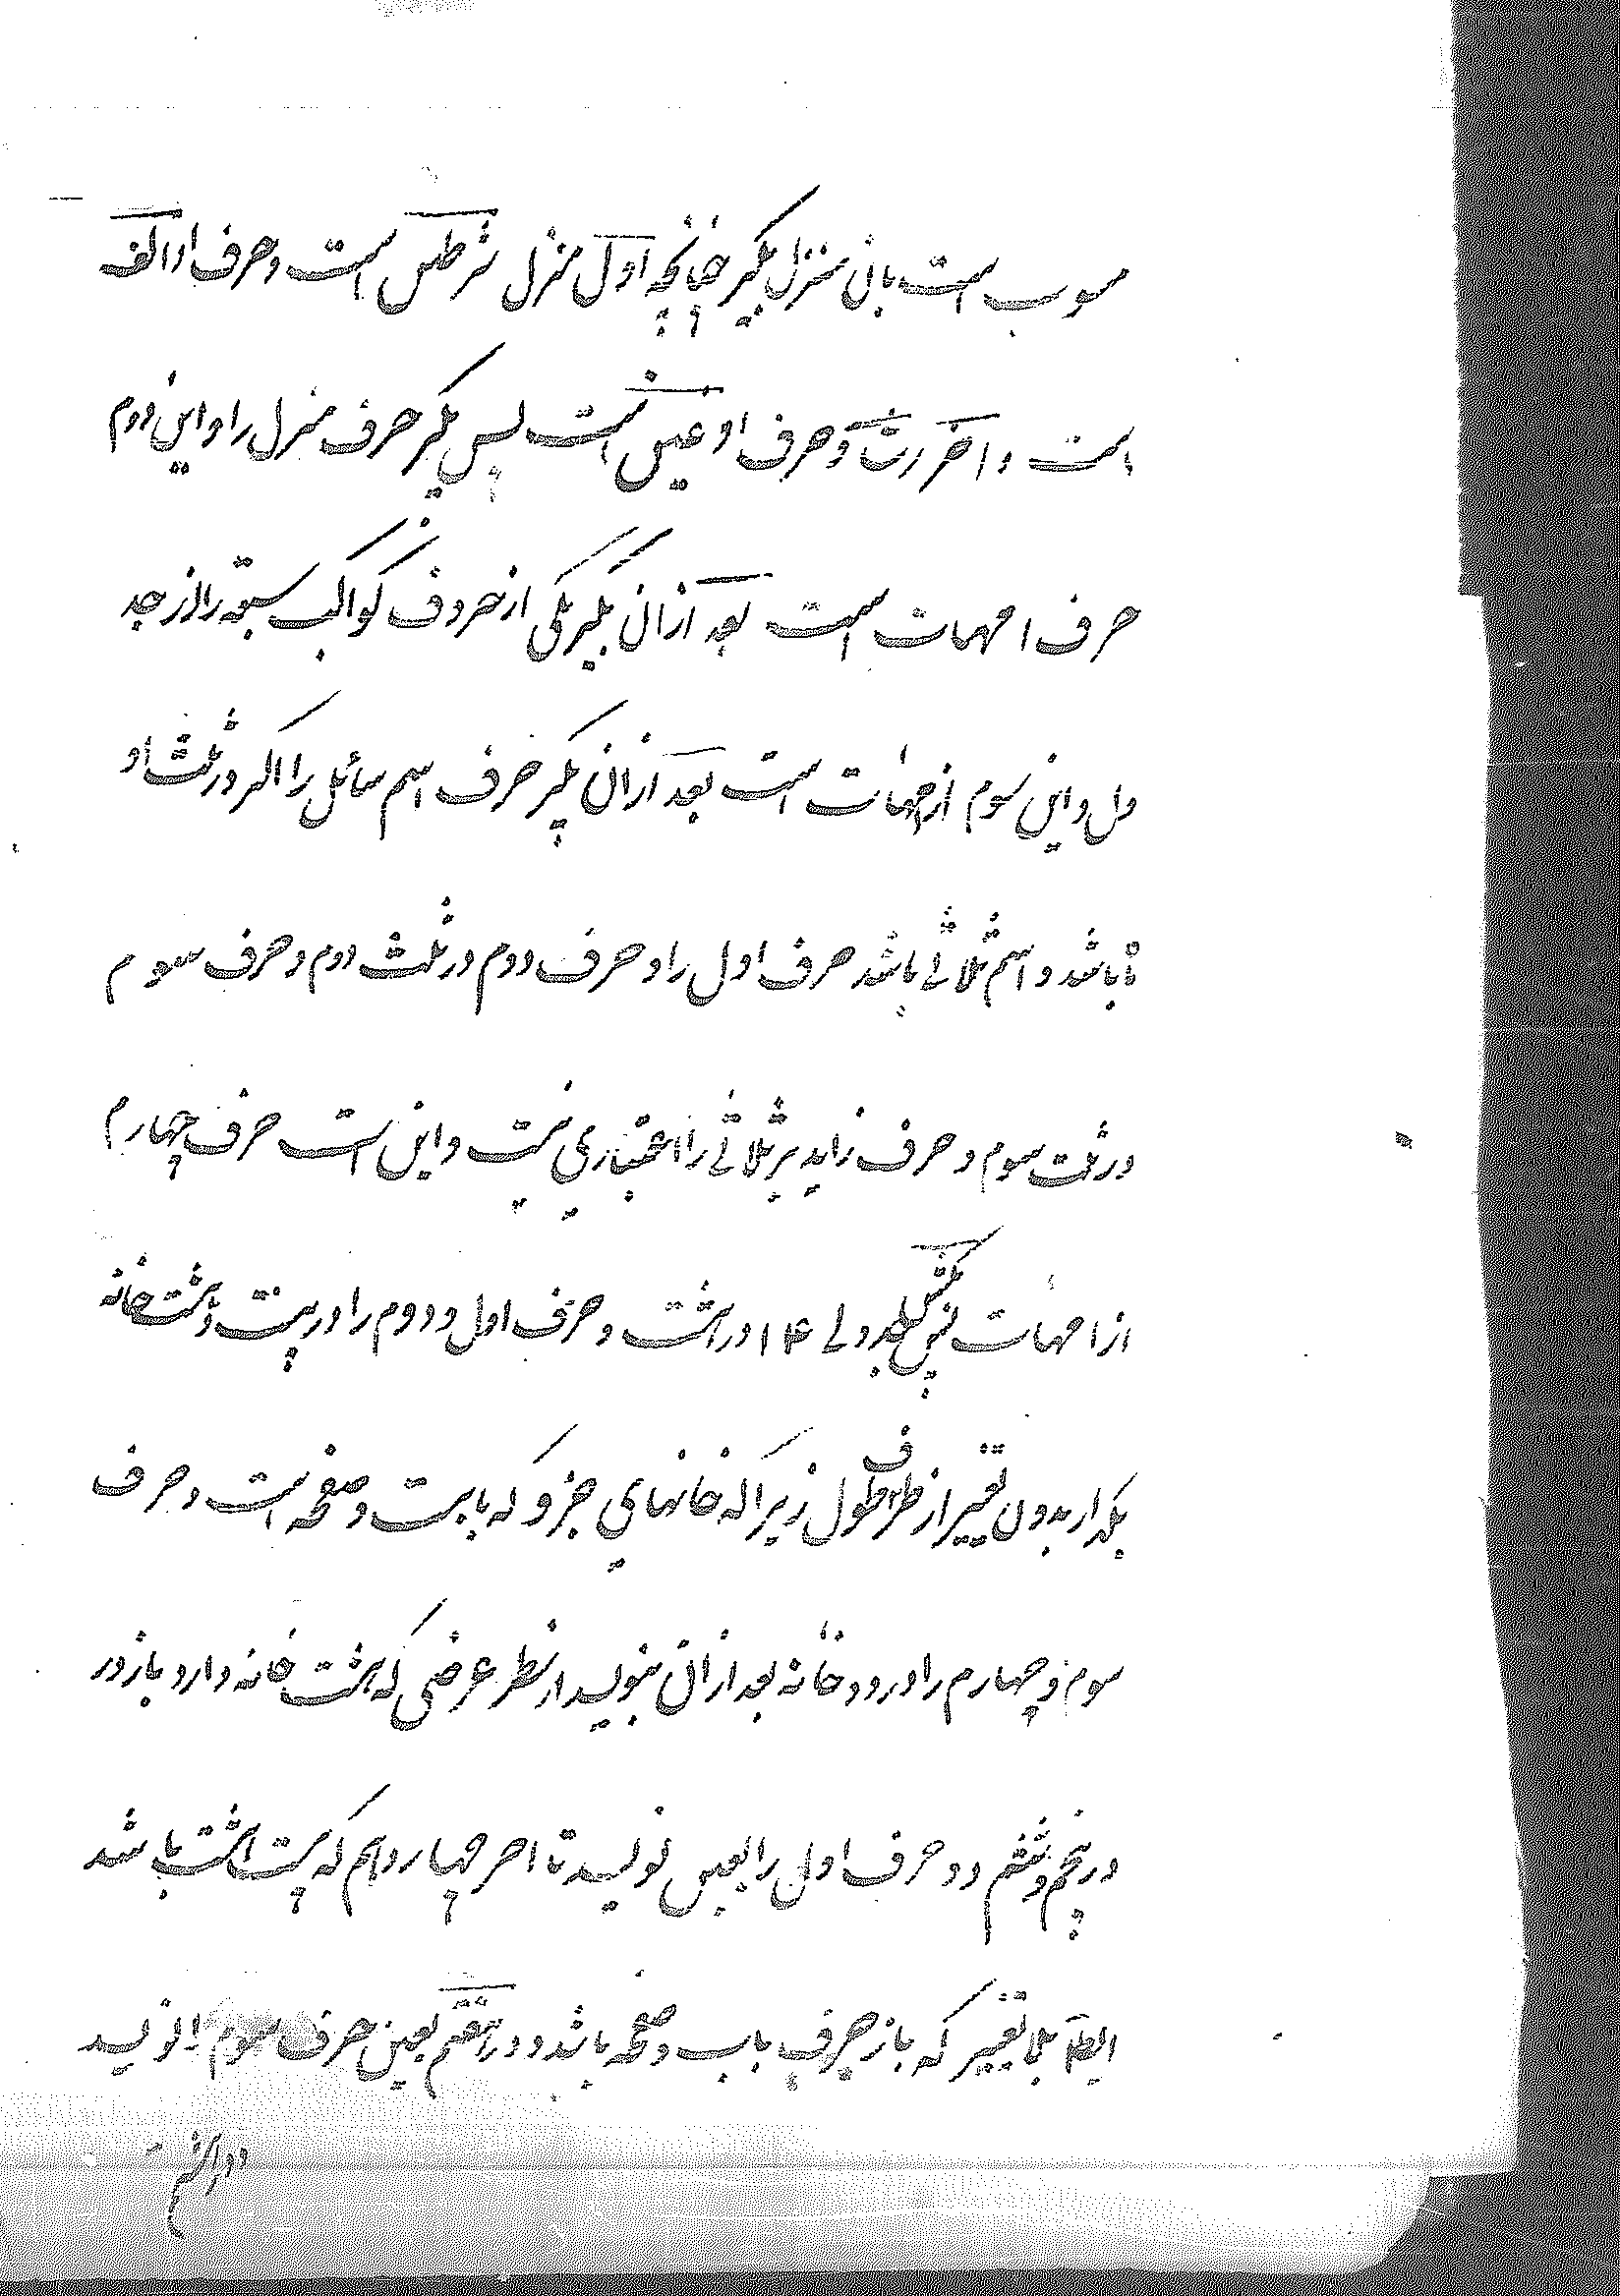 سوب است بان منزل بگیر چنانچه اول منزل شرطین است و حرف او الف
است و اخر رشا و حرف او غین است پس بگیر حرف منزل را و این دوم
حرف امهات است بعد ازان بگیر یکی از حروف کواکب سبعه را از جد
ول و این سوم از امهات است بعد ازان بگیر حرف اسم سائل را اگر در ثلث او
باشد و اسم ثلاثی باشد حرف اول را و حرف دوم در ثلث دوم و حرف سوم
در ثلث سوم و حرف زاید بر ثلاثی را اعتباری نیست و این است حرف چهارم
از امهات پس بکش جدولی ۱۴ در هشت و حرف اول و دوم را در بیست و هشت خانه
بگذار بدون تغییر از طرف طول زیرا که خانهای جزو که باب است و صفحه است و حرف
سوم و چهارم را در دو خانه بعد ازان بنویسد از نظر عرضی که هشت خانه دارد باز در
در پنجم و ششم دو حرف اول را بعین نویسد تا اخر چهاردهم که بیست هشت باشد
ایضا بلا تغییر که باز حرف باب و صفحه باشد و در هفتم بعین حرف سوم را نویسد
و در هشتم